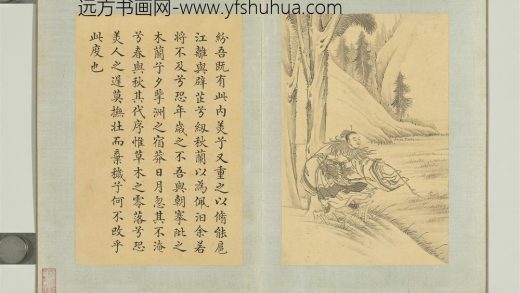 远方书画网-www.yfshuhua.com
紛吾既有此內美兮又重之以脩能扈
江離與辟芷兮紉秋蘭以為佩汩余若
將不及兮恐年歲之不吾與朝搴阰之
木蘭兮夕擥洲之宿莽日月忽其不淹
兮春與秋其代序惟草木之零落兮恐
美人之遲莫撫壯而棄穢兮何不改乎
此度也